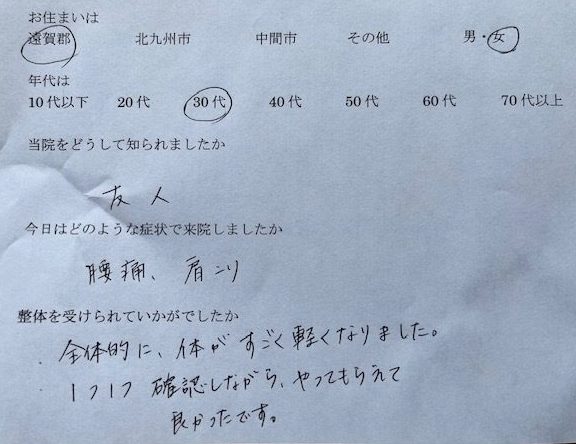 お住まいは
遠賀郡 北九州市 中間市 その他 男・女
年代は
10代以下 20代 30代 40代 50代 60代 70代以上
当院をどうして知られましたか
友人
今日はどのような症状で来院しましたか
腰痛、肩こり
整体を受けられていかがでしたか
全体的に、体がすごく軽くなりました。
1つ1つ確認しながら、やってもらえて
良かったです。